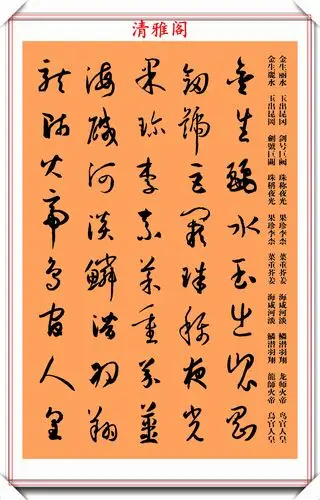 清雅阁
金生丽水 玉出昆冈 剑号巨阙 珠称夜光 果珍李柰 菜重芥姜 海咸河淡 鳞潜羽翔 龙师火帝 鸟官人皇
金生麗水 玉出昆岡 劍號巨闕 珠稱夜光 果珍李柰 菜重芥姜 海咸河淡 鱗潛羽翔 龍師火帝 鳥官人皇
金生麗水玉出崑岡
劍號巨闕珠稱夜光
果珍李柰菜重芥薑
海鹹河淡鱗潛羽翔
龍師火帝鳥官人皇